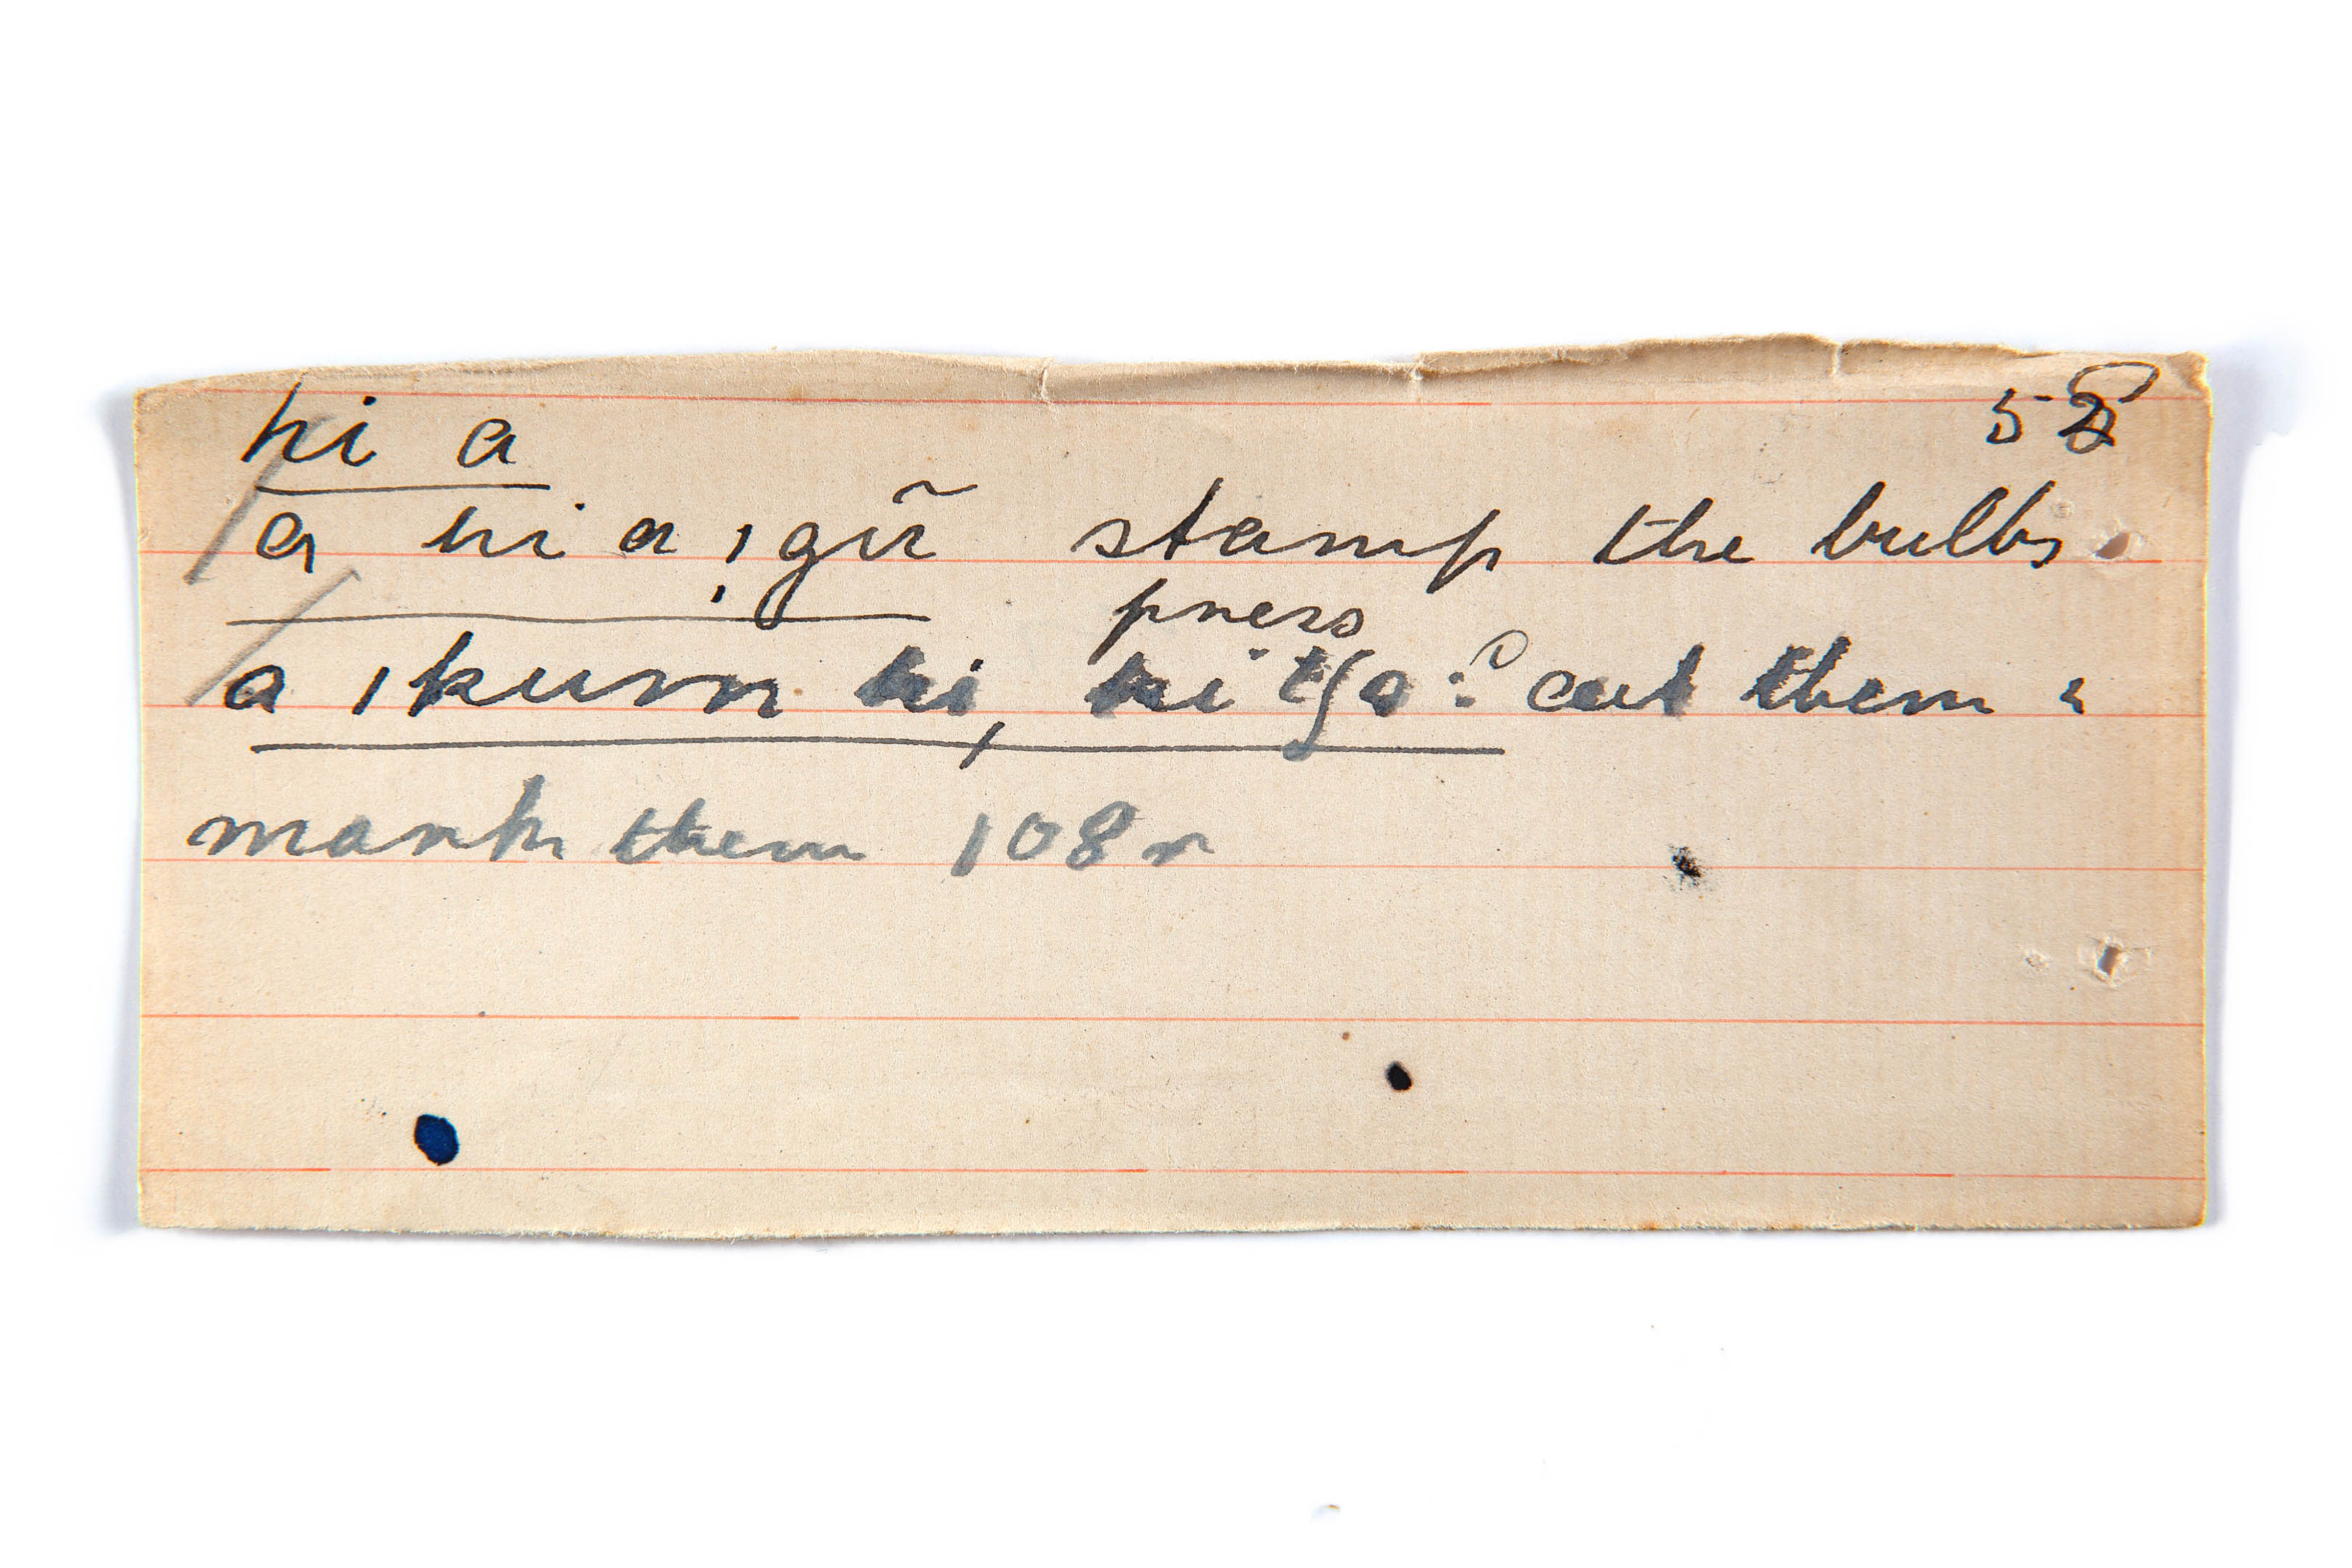 hi a 58
a hi a ˌgũ stamp the bulbs
press
a ˌkum hi, hi tʃa: cut them &
mark them 108r